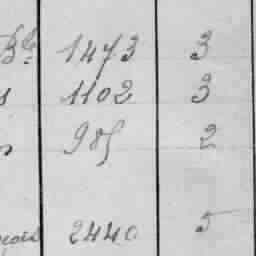 1473 3
1102 3
985 2
2440 5